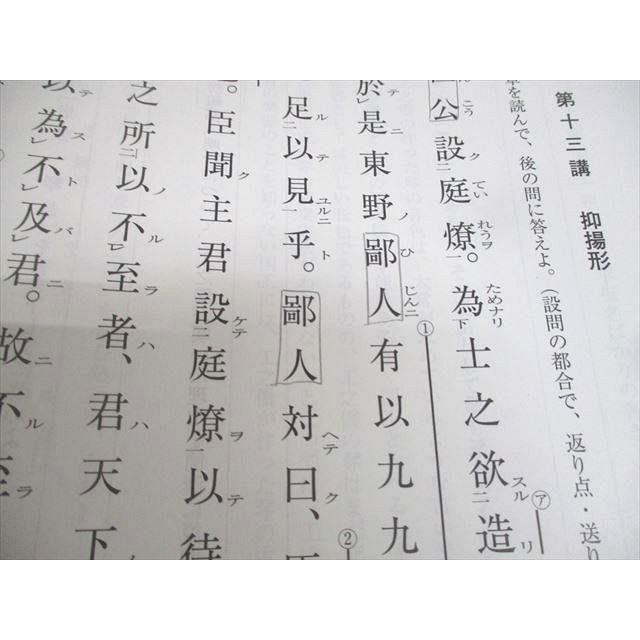 第十三講 抑揚形
を読んで、後の問に答えよ。(設問の都合で、返り点・送り
公設庭燎。為士之欲造
於是東野鄙人有以九九
足以見乎。鄙人対曰、
。臣聞主君設庭燎以待
之所以不至者、君天下
以為不及君。故不至